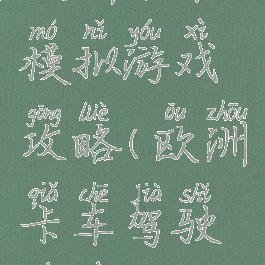 mó nǐ yóu xì
模拟游戏
gōng lüè ōu zhōu
攻略(欧洲
qiǎ chē jià shǐ
卡车驾驶